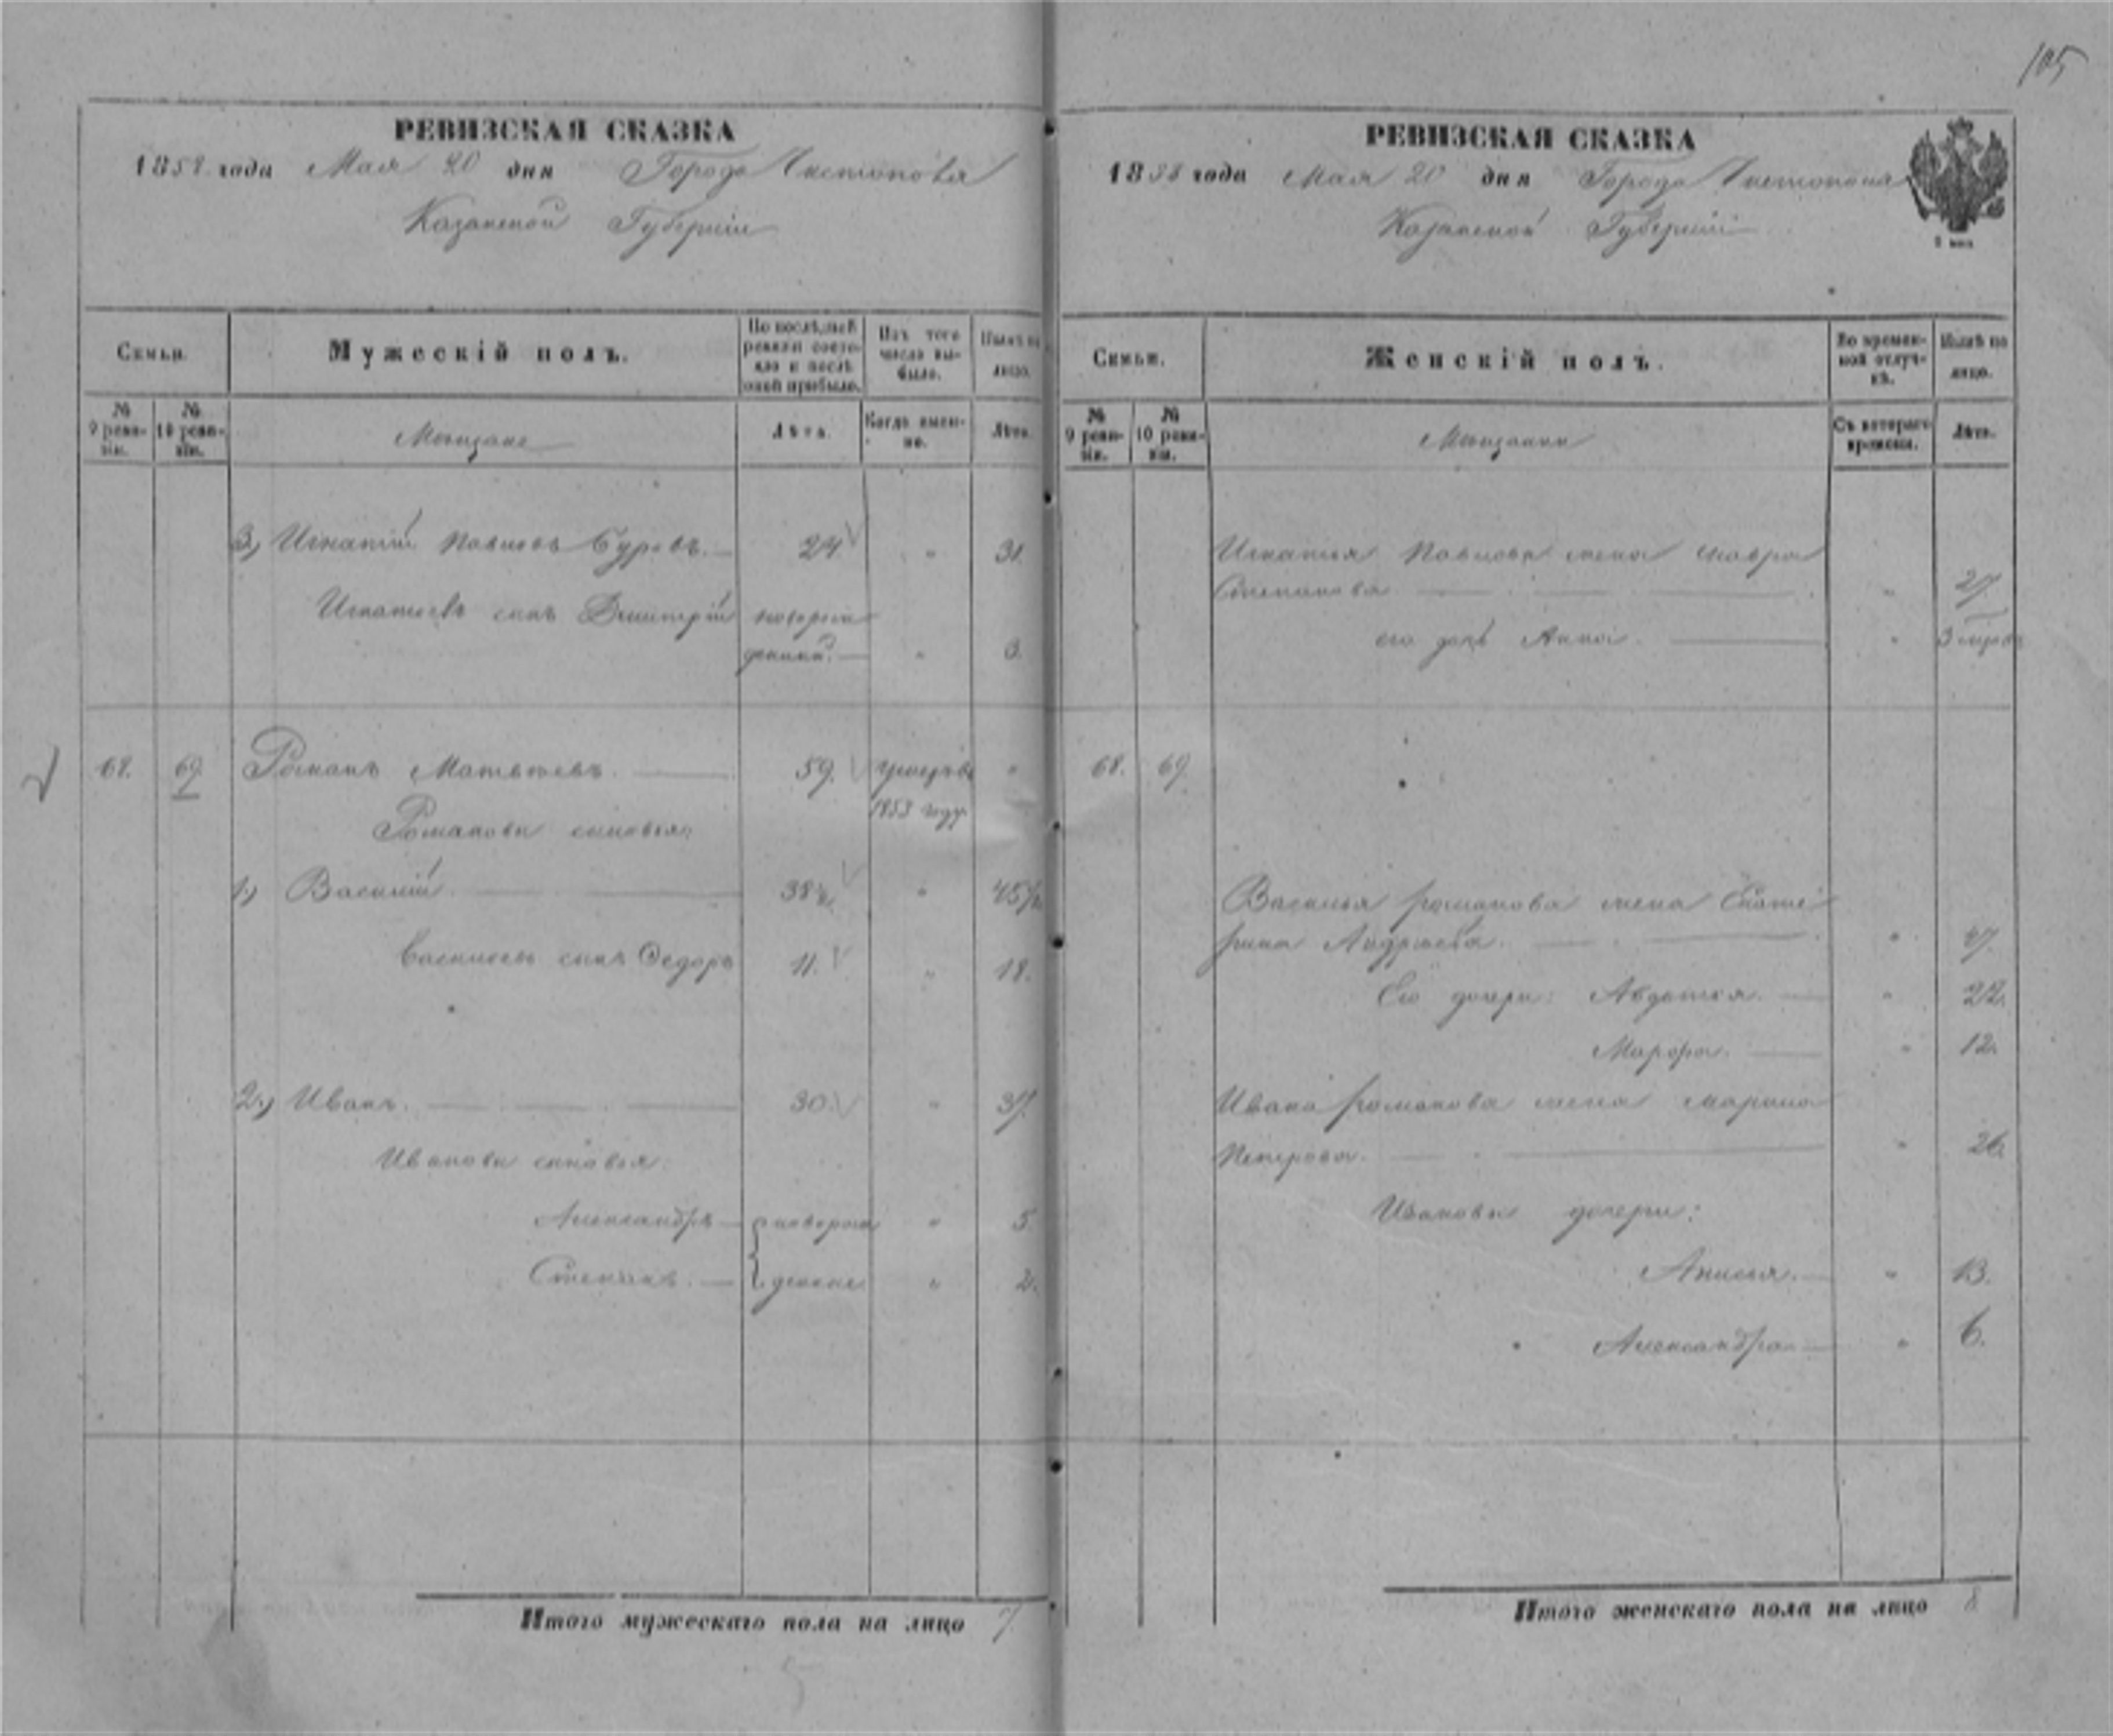 105
РЕВИЗСКАЯ СКАЗКА
1858 года Мая 20 дня Города Чистополя
Казанской Губерніи
Семьи.
Мужескій полъ.
По послѣдней ревизіи состояло и послѣ оной прибыло.
Изъ того числа выбыло.
Нынѣ на лицо.
№ 9 ревизіи.
№ 10 ревизіи.
Мещане
Лѣта.
Когда именно.
Лѣта.
3) Игнатій Павловъ Буровъ. 24 " 31.
Игнатьевъ сынъ Дмитрій новорож
денный. " 3.
68. 69. Романъ Матвѣевъ. 59. умеръ въ "
1853 году.
Романовы сыновья:
1.) Василій. 38½ " 45½
Васильевъ сынъ Федоръ 11. " 18.
2.) Иванъ. 30. " 37.
Ивановы сыновья:
Александръ новорож " 5
Степанъ. денные " 2.
Итого мужескаго пола на лицо 7.
РЕВИЗСКАЯ СКАЗКА
1858 года Мая 20 дня Города Чистополя
Казанской Губерніи
Семьи.
Женскій полъ.
Во временной отлучкѣ.
Нынѣ на лицо.
№ 9 ревизіи.
№ 10 ревизіи.
Мещанки
Съ котораго времени.
Лѣта.
Игнатья Павлова жена Мавра
Степанова " 27.
его дочь Анна. "
68. 69.
Василья Романова жена Екате
рина Андреева. " 47.
Его дочери: Авдотья. " 22.
Марфа. " 12.
Ивана Романова жена Марина
Петрова. " 26.
Ивановы дочери:
Анисья. " 13.
Александра " 6.
Итого женскаго пола на лицо 8